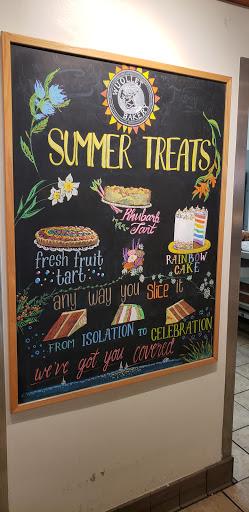 WUOLLET
BAKERY
SUMMER TREATS
Rhubarb
Tart
fresh fruit
tart
RAINBOW
CAKE
any way you SLICE it
FROM ISOLATION TO CELEBRATION
we've got you covered